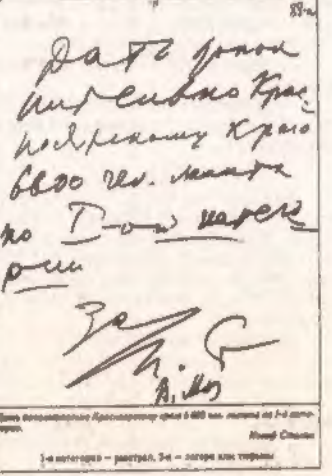 89-а
Дать допол
нительно Крас
ноярскому краю
6600 чел. лимита
по I-ой катего
рии
За
И. Ст
В. Мол
Дать дополнительно Красноярскому краю 6 600 чел. лимита по 1-й кате-
гории.
Иосиф Сталин
1-я категория — расстрел, 2-я — лагеря или тюрьмы